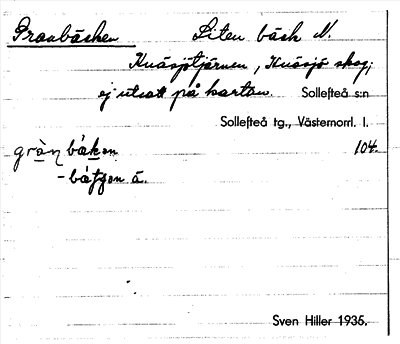 Granbäcken Liten bäck N.
Knäsjötjärnen, Knäsjö skog;
ej utsatt på kartan. Sollefteå s:n
Sollefteå tg., Västernorrl. l.
104.
Sven Hiller 1935.